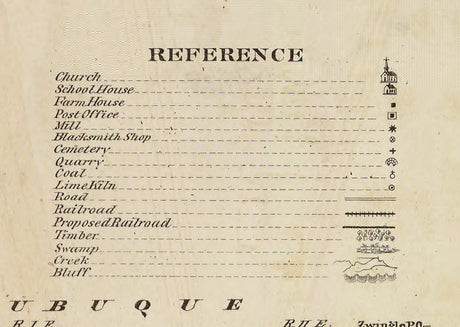 REFERENCE
Church
School House
Farm House
Post Office
Mill
Blacksmith Shop
Cemetery
Quarry
Coal
Lime Kiln
Road
Railroad
Proposed Railroad
Timber
Swamp
Creek
Bluff
UBUQUE
R.I.E.
R.II.E.
Zwingle P.O.